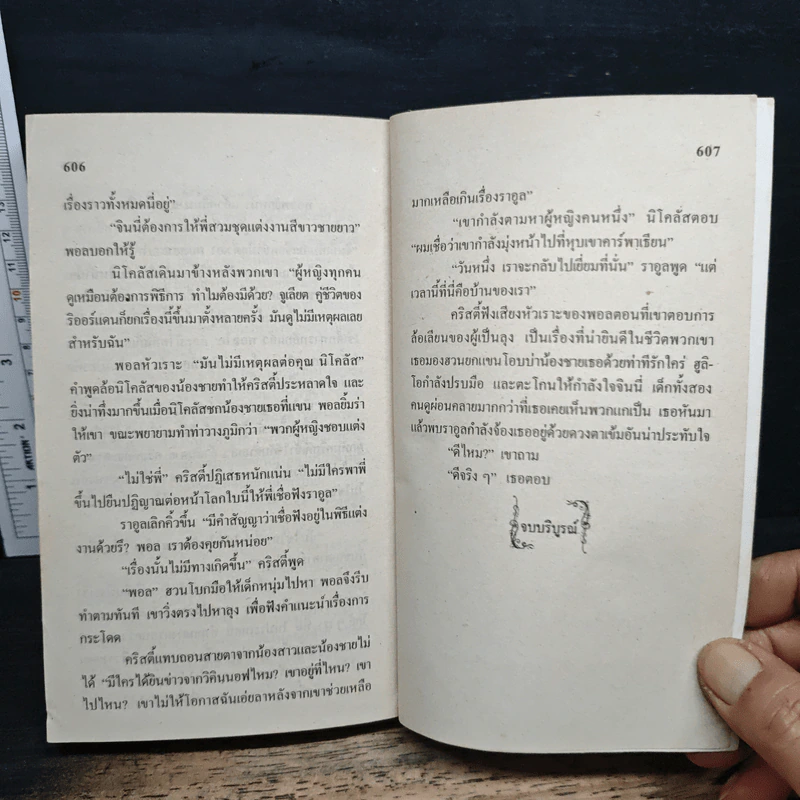 606
เรื่องราวทั้งหมดนี่อยู่”
“จินนี่ต้องการให้พี่สวมชุดแต่งงานสีขาวชายยาว”
พอลบอกให้รู้
นิโคลัสเดินมาข้างหลังพวกเขา “ผู้หญิงทุกคน
ดูเหมือนต้องการพิธีการ ทำไมต้องมีด้วย? จูเลียต คู่ชีวิตของ
ริออร์แดนก็ยกเรื่องนี้ขึ้นมาตั้งหลายครั้ง มันดูไม่มีเหตุผลเลย
สำหรับฉัน”
พอลหัวเราะ “มันไม่มีเหตุผลต่อคุณ นิโคลัส”
คำพูดล้อนิโคลัสของน้องชายทำให้คริสตี้ประหลาดใจ และ
ยิ่งน่าทึ่งมากขึ้นเมื่อนิโคลัสชกน้องชายเธอที่แขน พอลยิ้มร่า
ให้เขา ขณะพยายามทำท่าวางภูมิกว่า “พวกผู้หญิงชอบแต่ง
ตัว”
“ไม่ใช่พี่” คริสตี้ปฏิเสธหนักแน่น “ไม่มีใครพาพี่
ขึ้นไปยืนปฏิญาณต่อหน้าโลกใบนี้ให้พี่เชื่อฟังราอูล”
ราอูลเลิกคิ้วขึ้น “มีคำสัญญาว่าเชื่อฟังอยู่ในพิธีแต่ง
งานด้วยรึ? พอล เราต้องคุยกันหน่อย”
“เรื่องนั้นไม่มีทางเกิดขึ้น” คริสตี้พูด
“พอล” ฮวนโบกมือให้เด็กหนุ่มไปหา พอลจึงรีบ
ทำตามทันที เขาวิ่งตรงไปหาลุง เพื่อฟังคำแนะนำเรื่องการ
กระโดด
คริสตี้แทบถอนสายตาจากน้องสาวและน้องชายไม่
ได้ “มีใครได้ยินข่าวจากวิคินนอฟไหม? เขาอยู่ที่ไหน? เขา
ไปไหน? เขาไม่ให้โอกาสฉันเอ่ยลาหลังจากเขาช่วยเหลือ
607
มากเหลือเกินเรื่องราอูล”
“เขากำลังตามหาผู้หญิงคนหนึ่ง” นิโคลัสตอบ
“ผมเชื่อว่าเขากำลังมุ่งหน้าไปที่หุบเขาคาร์พาเธียน”
“วันหนึ่ง เราจะกลับไปเยี่ยมที่นั่น” ราอูลพูด “แต่
เวลานี้ที่นี่คือบ้านของเรา”
คริสตี้ฟังเสียงหัวเราะของพอลตอนที่เขาตอบการ
ล้อเลียนของผู้เป็นลุง เป็นเรื่องที่น่ายินดีในชีวิตพวกเขา
เธอมองฮวนยกแขนโอบบ่าน้องชายเธอด้วยท่าทีรักใคร่ ฮูลิ-
โอกำลังปรบมือ และตะโกนให้กำลังใจจินนี่ เด็กทั้งสอง
คนดูผ่อนคลายมากกว่าที่เธอเคยเห็นพวกแกเป็น เธอหันมา
แล้วพบราอูลกำลังจ้องเธออยู่ด้วยดวงตาเข้มอันน่าประทับใจ
“ดีไหม?” เขาถาม
“ดีจริง ๆ” เธอตอบ
จบบริบูรณ์